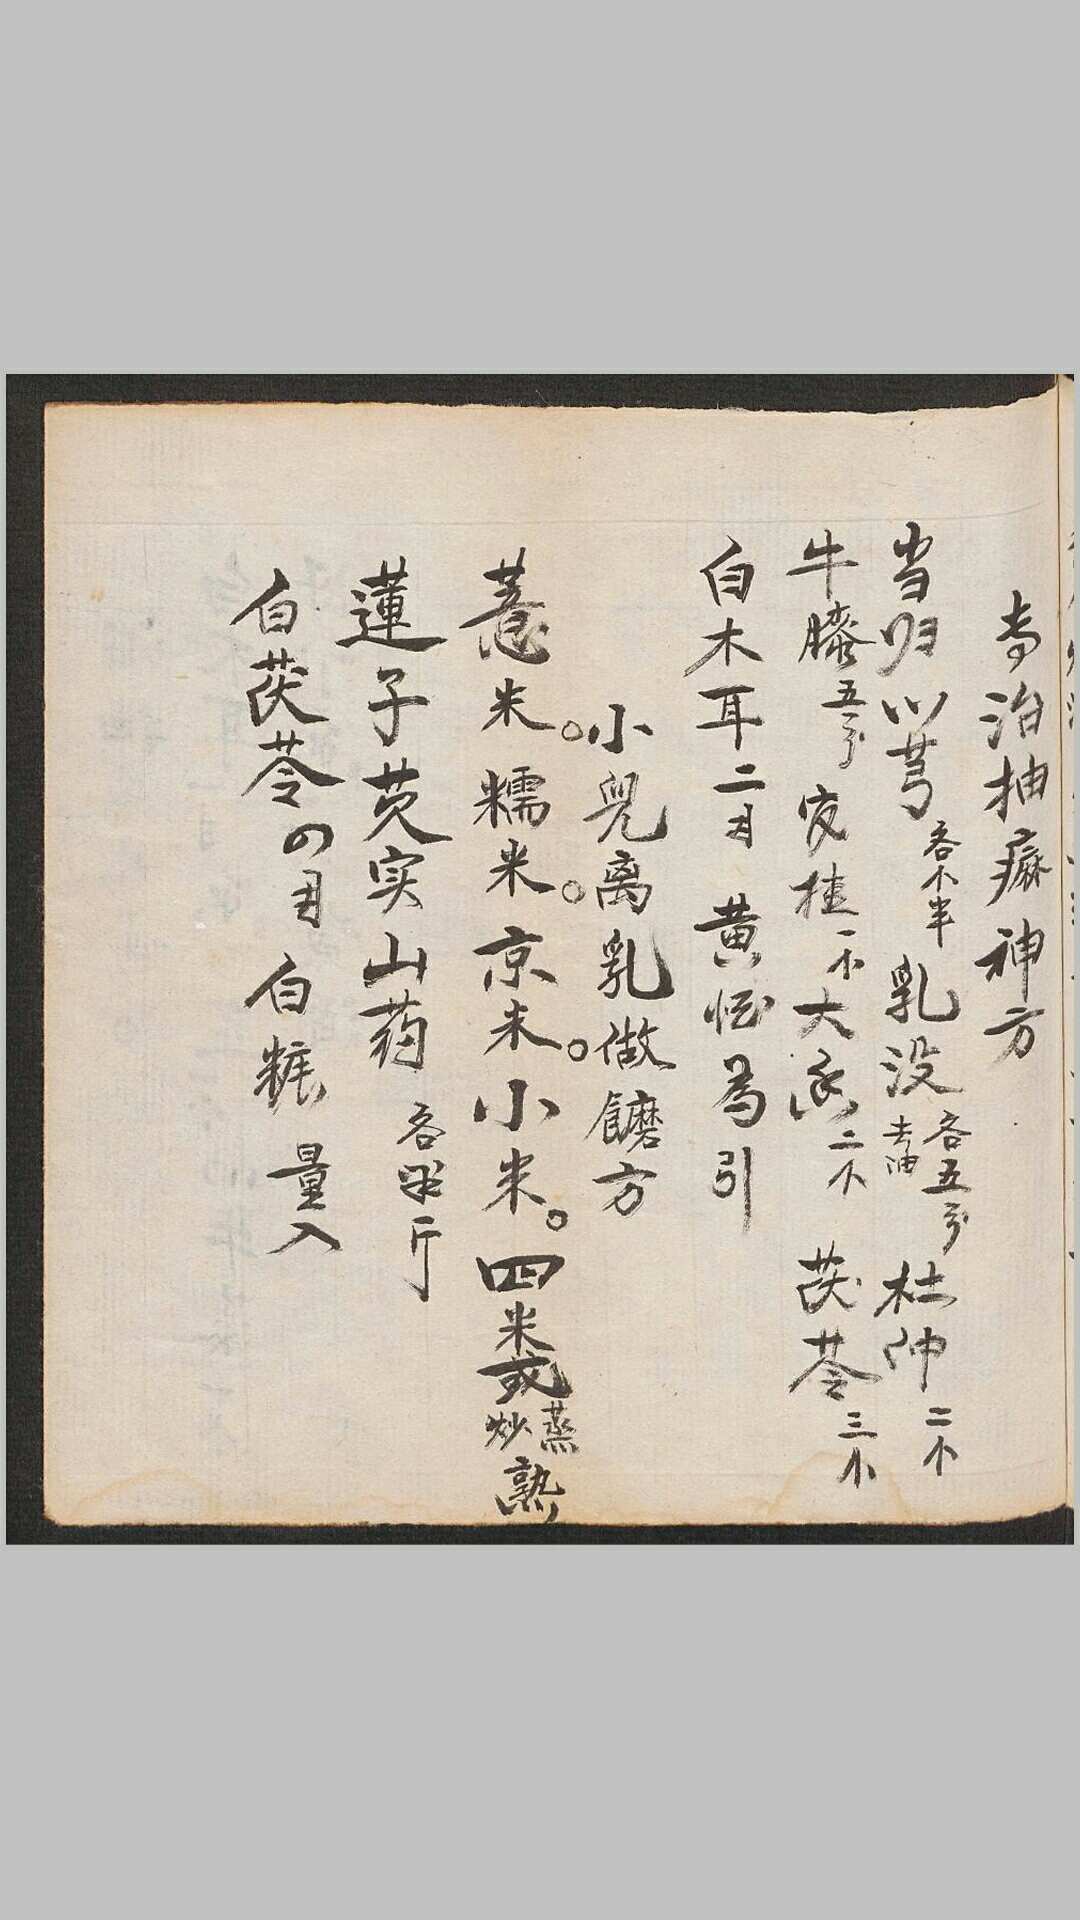 专治抽瘋神方
当归 川芎 各个半 乳没 去油 各五分 杜仲 二个
牛膝 五分 安桂 一个 大 二个 茯苓 三个
白木耳二 黄酒為引
小兒离乳做饝方
薏米。糯米。京米。小米。四米或蒸炒熟
蓮子芡实山药 各半斤
白茯苓 白糖 量入